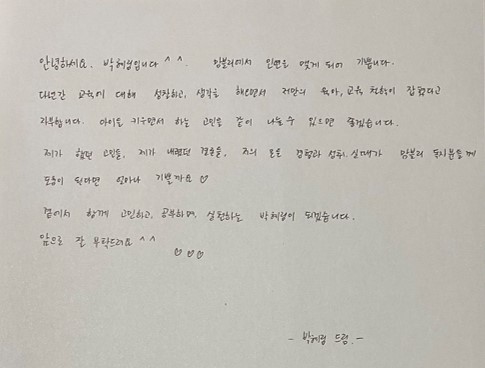 안녕하세요. 박혜림입니다 ^ ^. 맘블리에서 인연을 맺게 되어 기쁩니다.
다년간 교육에 대해 성장하고, 생각을 해오면서 저만의 육아, 교육 철학이 잡혔다고
자부합니다. 아이를 키우면서 하는 고민을 같이 나눌 수 있으면 좋겠습니다.
제가 했던 고민들, 제가 내렸던 결론들, 저의 모든 경험과 성공, 실패가 맘블리 동지분들께
도움이 된다면 얼마나 기쁠까요 ♡
곁에서 함께 고민하고, 공부하며, 실천하는 박혜림이 되겠습니다.
앞으로 잘 부탁드려요 ^ ^
♡♡♡
- 박혜림 드림. -